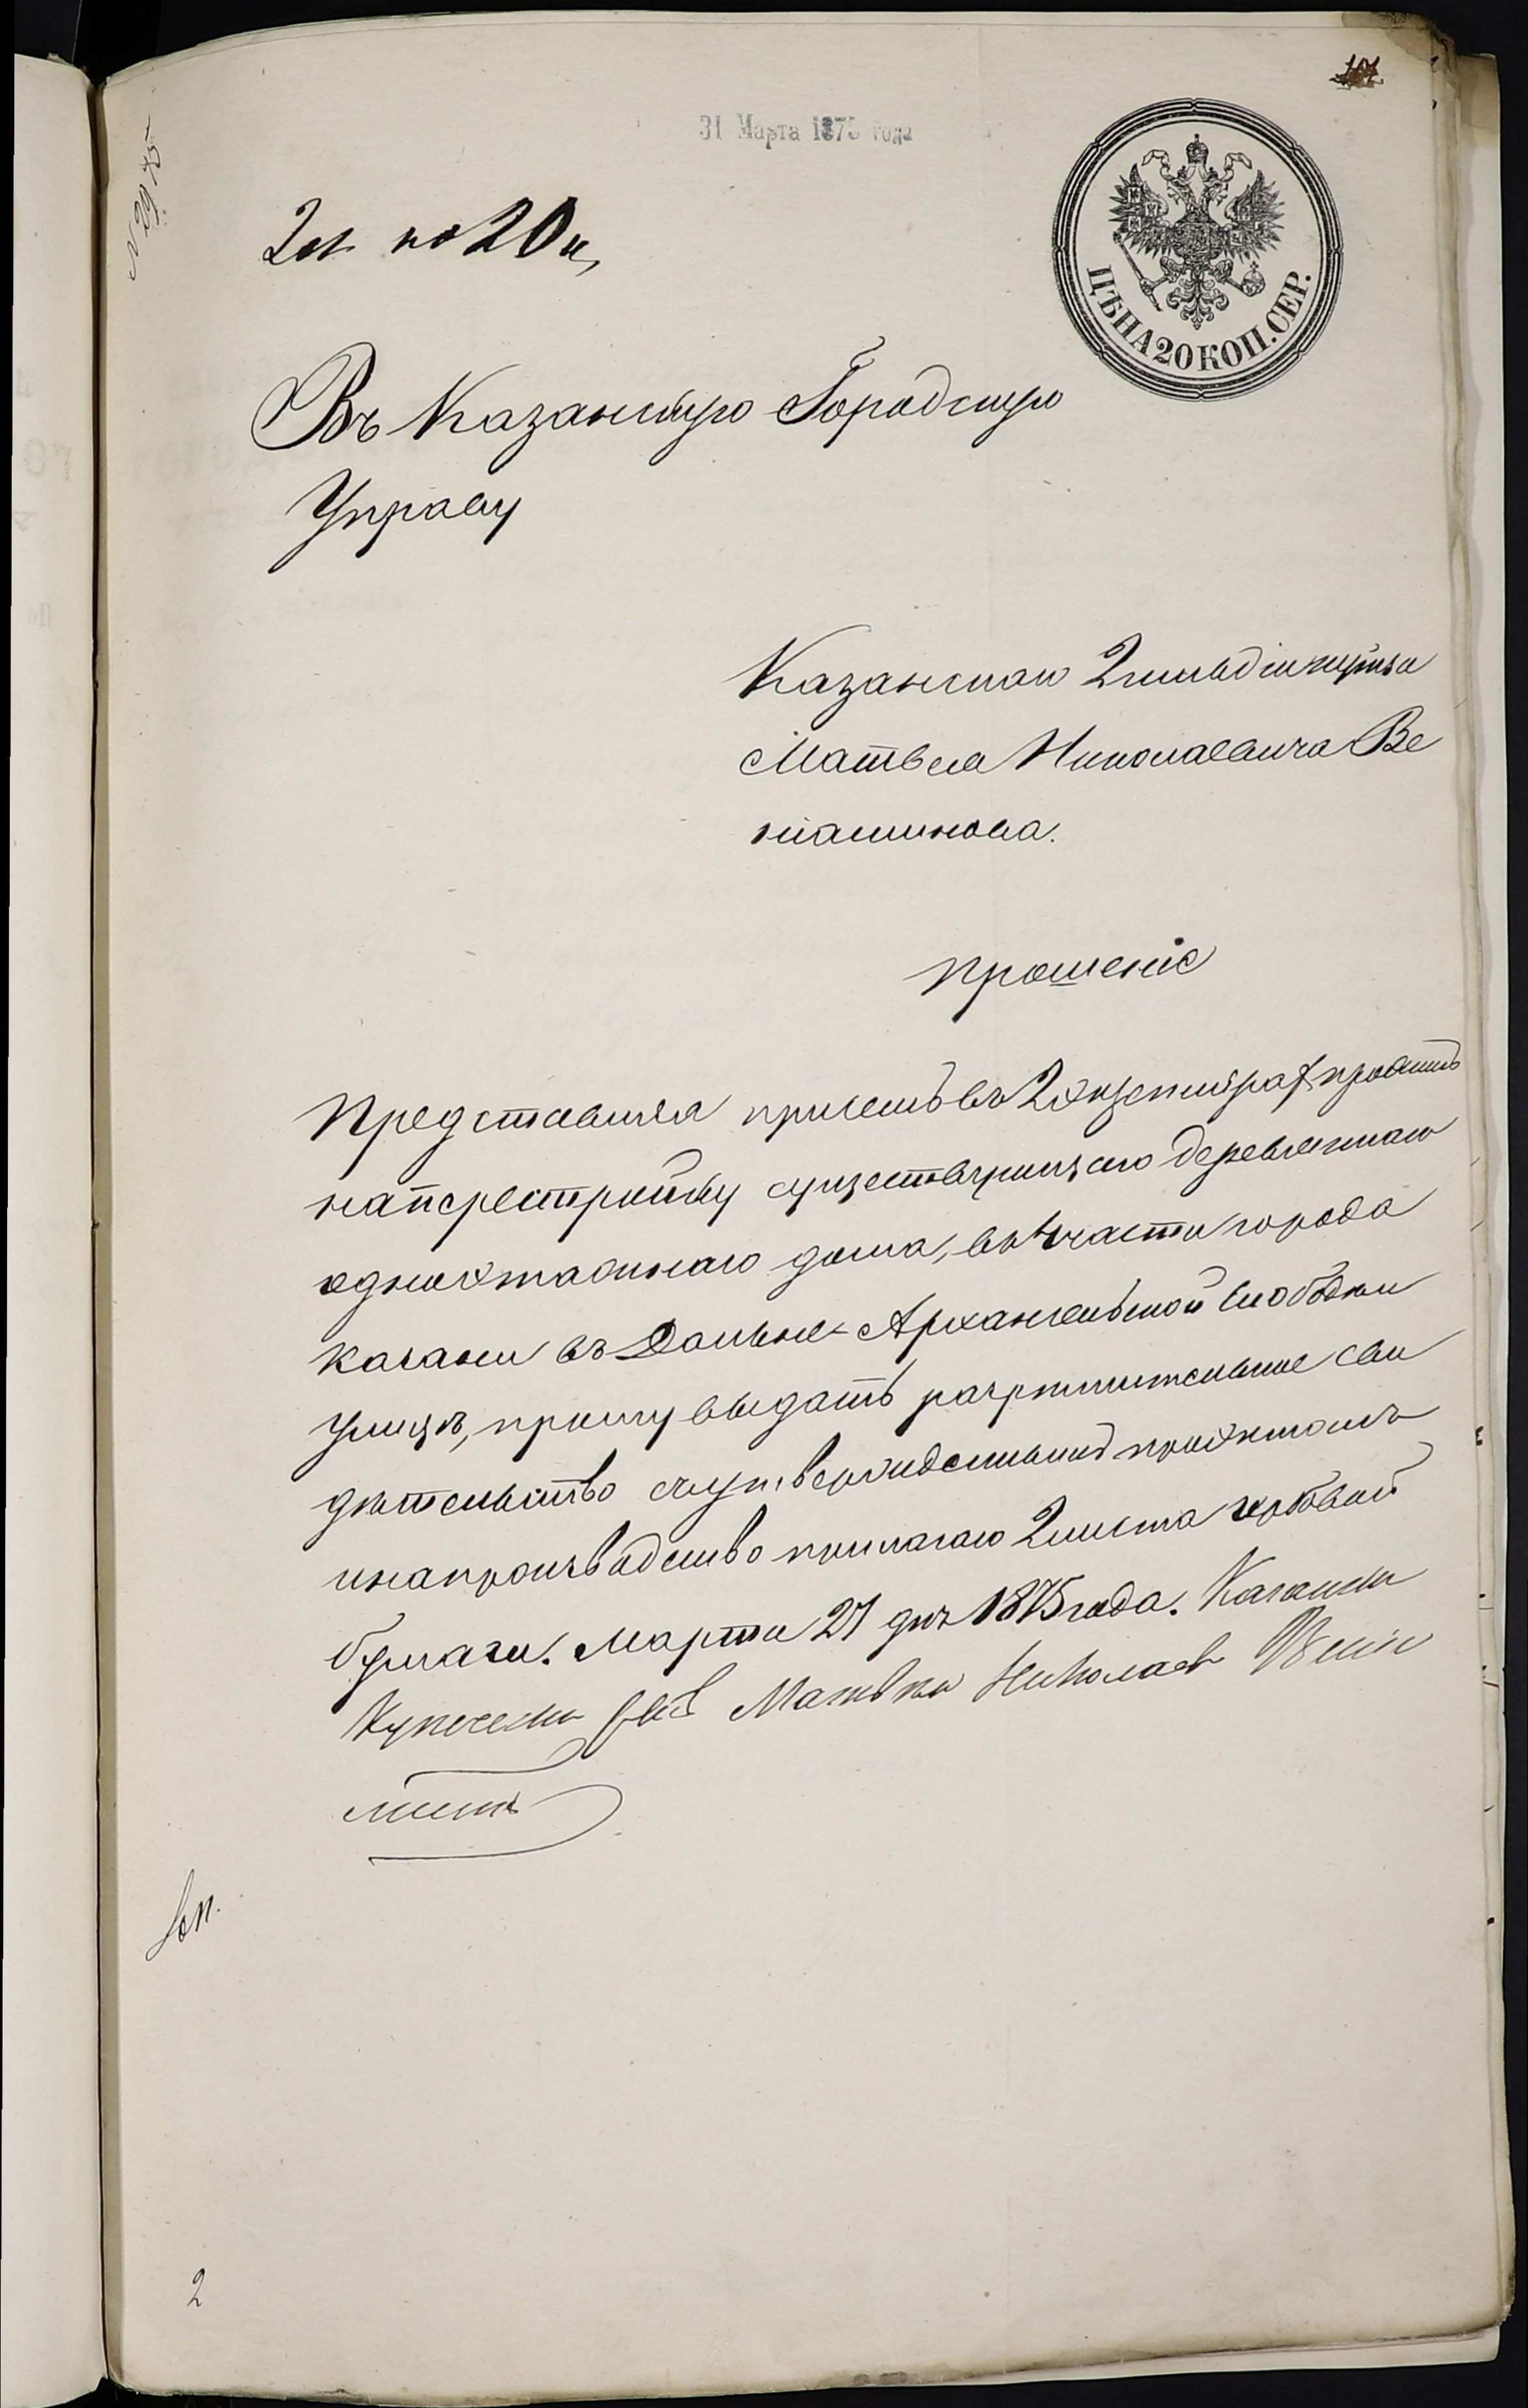 31 Марта 1875 года
2 л. по 20 к,
ЦѢНА 20 КОП. СЕР.
Въ Казанскую Городскую
Управу
Казанскаго 2 гильдіи купца
Матвея Николаевича Ве
ніаминова.
Прошеніе
Представляя присемъ въ 2 экземплярах проэктъ
на перестройку существующаго деревяннаго
одноэтажнаго дома, въ 4 части города
Казани въ Дальне-Архангельской Слободки
улицѣ, прошу выдать разрѣшительное сви
дѣтельство с утвержденнымъ проэктомъ
и на производство прилагаю 2 листа гербовой
бумаги. Марта 27 дня 1875 года. Казански
Николаев Вени
2